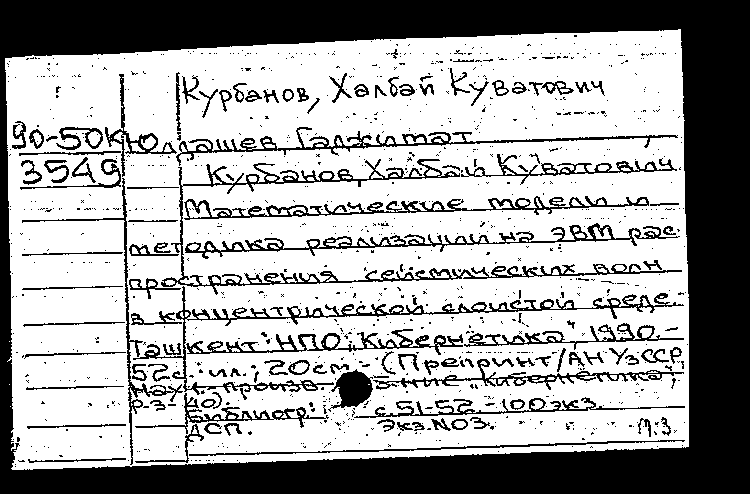 Курбанов, Халбай Куватович
90-50К Юлдашев, Гаджимат
3549 Курбанов, Халбай Куватович
Математические модели и
методика реализации на ЭВМ рас-
пространения сейсмических волн
в концентрической слоистой среде.-
Ташкент: НПО „Кибернетика", 1990.-
52с.: ил.; 20см.- (Препринт/АН УзССР,
Науч.-произв. ние „Кибернетика";
Р-3-40).
Библиогр.: с.51-52.-100экз.
ДСП. Экз.N03.